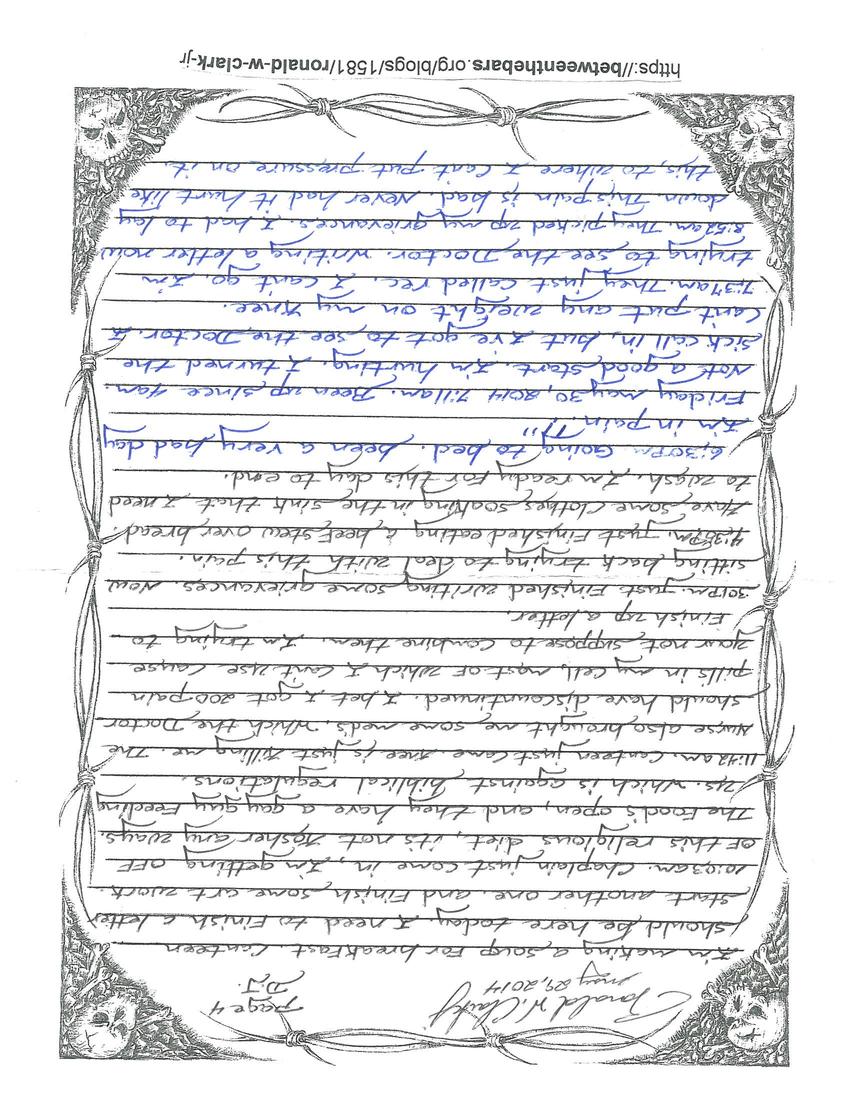 Ronald W. Clark Jr
May 29, 2014
Page 4
D.J.
I'm making a soup for breakfast. Canteen
should be here today. I need to Finish a letter
start another one. and Finish some art work.
10:03am. Chaplain just come in, I'm getting OFF
OF this religious diet, it's not Kosher any ways.
The Food's open, and they have a gay guy Feeding
us. Which is against biblical regulations.
11:42am. Canteen just come. Knee is just killing me. The
Nurse also brought me some meds. Which the Doctor
should have discountinued. I bet I got 200 pain
pills in my cell, most OF which I can't use cause
your not suppose to combine them. I'm trying to
Finish up a letter.
301Pm. Just Finished writing some grievances. Now
sitting back trying to deal with this pain.
4:35Pm. Just Finished eating a beef stew over bread.
Have some clothes soaking in the sink that I need
to wash. I'm ready For this day to end.
6:30Pm Going to bed. been a very bad day
I'm in pain. T!,,
Friday may 30, 2014 7:11am. Been up since 4am
Not a good start. I'm hurting. I turned the
sick call in, but I've got to see the Doctor. I
Can't put any weight on my Knee.
7:37am. They just called rec. I can't go. I'm
trying to see the Doctor. Writing a letter now
8:52am. They picked up my grievances. I had to lay
down. This pain is bad. Never had it hurt like
this, to where I can't put pressure on it
https://betweenthebars.org/blogs/1581/ronald-w-clark-jr